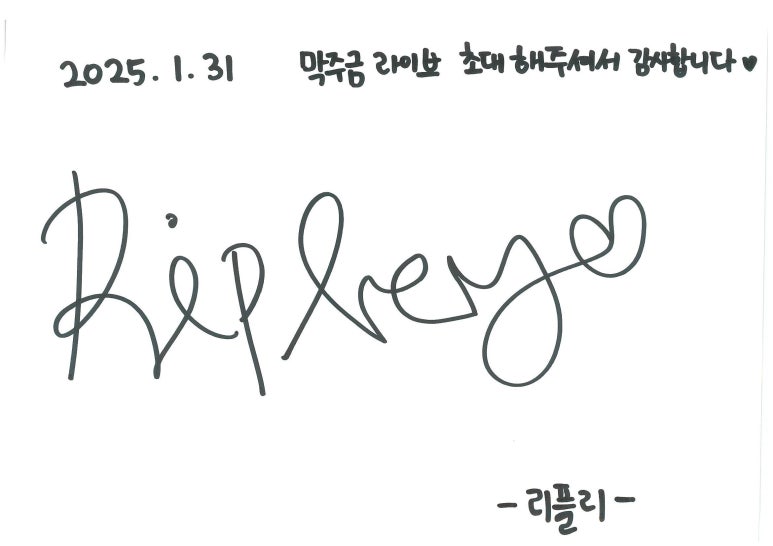 2025.1.31 막주금 라이브 초대해주셔서 감사합니다♥
Ripley♡
-리플리-